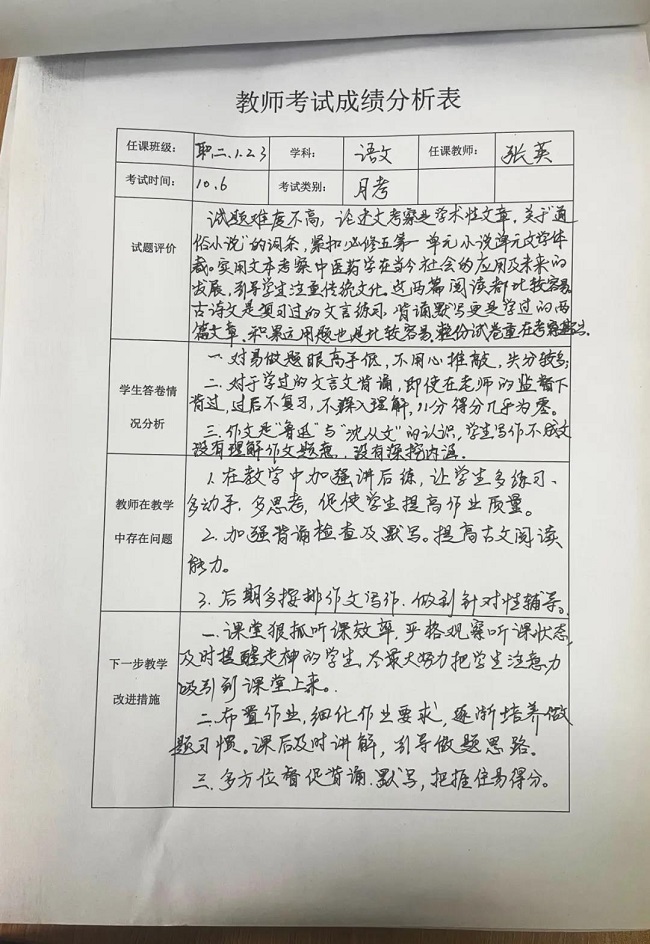 教师考试成绩分析表
任课班级： 职二.1.2.3 学科： 语文 任课教师： 张英
考试时间： 10.6 考试类别： 月考
试题评价
试题难度不高，论述文考察是学术性文章，关于“通
俗小说”的词条，紧扣必修五第一单元小说单元文学体
裁。实用文本考察中医药学在当今社会的应用及未来的
发展，引导学生注重传统文化。这两篇阅读都比较容易，
古诗文是复习过的文言练习，背诵默写更是学过的两
篇文章。积累运用题也是比较容易，整份试卷重在考察基础。
学生答卷情
况分析
一、对易做题眼高手低，不用心推敲，失分较多；
二、对于学过的文言文背诵，即使在老师的监督下
背过，过后不复习，不深入理解，八分得分几乎为零。
三、作文是“鲁迅”与“沈从文”的认识，学生写作不成文
没有理解作文题意，没有深挖内涵。
教师在教学
中存在问题
1.在教学中加强讲后练，让学生多练习、
多动手，多思考，促使学生提高作业质量。
2.加强背诵检查及默写。提高古文阅读
能力。
3.后期多安排作文写作，做到针对性辅导。
下一步教学
改进措施
一.课堂狠抓听课效率，严格观察听课状态，
及时提醒走神的学生，尽最大努力把学生注意力
吸引到课堂上来。
二.布置作业，细化作业要求，逐渐培养做
题习惯。课后及时讲解，引导做题思路。
三.多方位督促背诵.默写，把握住易得分。